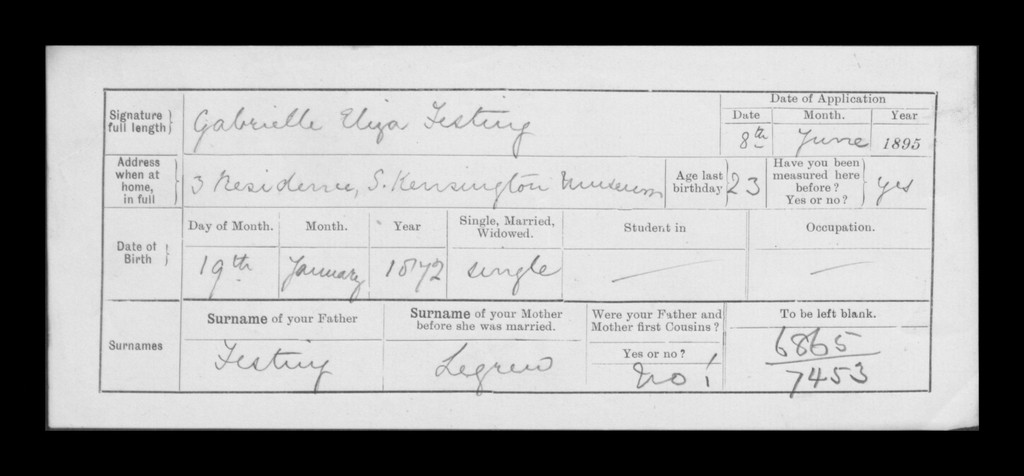 Signature full length} Gabrielle Eliza Festing
Date of Application
Date Month. Year
8th June 1895
Address when at home, in full} 3 Residence, S. Kensington Museum
Age last birthday} 23
Have you been measured here before? Yes or no?} yes
Date of Birth}
Day of Month. Month. Year Single, Married, Widowed. Student in Occupation.
19th January 1872 single — —
Surnames
Surname of your Father Surname of your Mother before she was married. Were your Father and Mother first Cousins? To be left blank.
Yes or no?
Festing Legrew no! 6865
7453